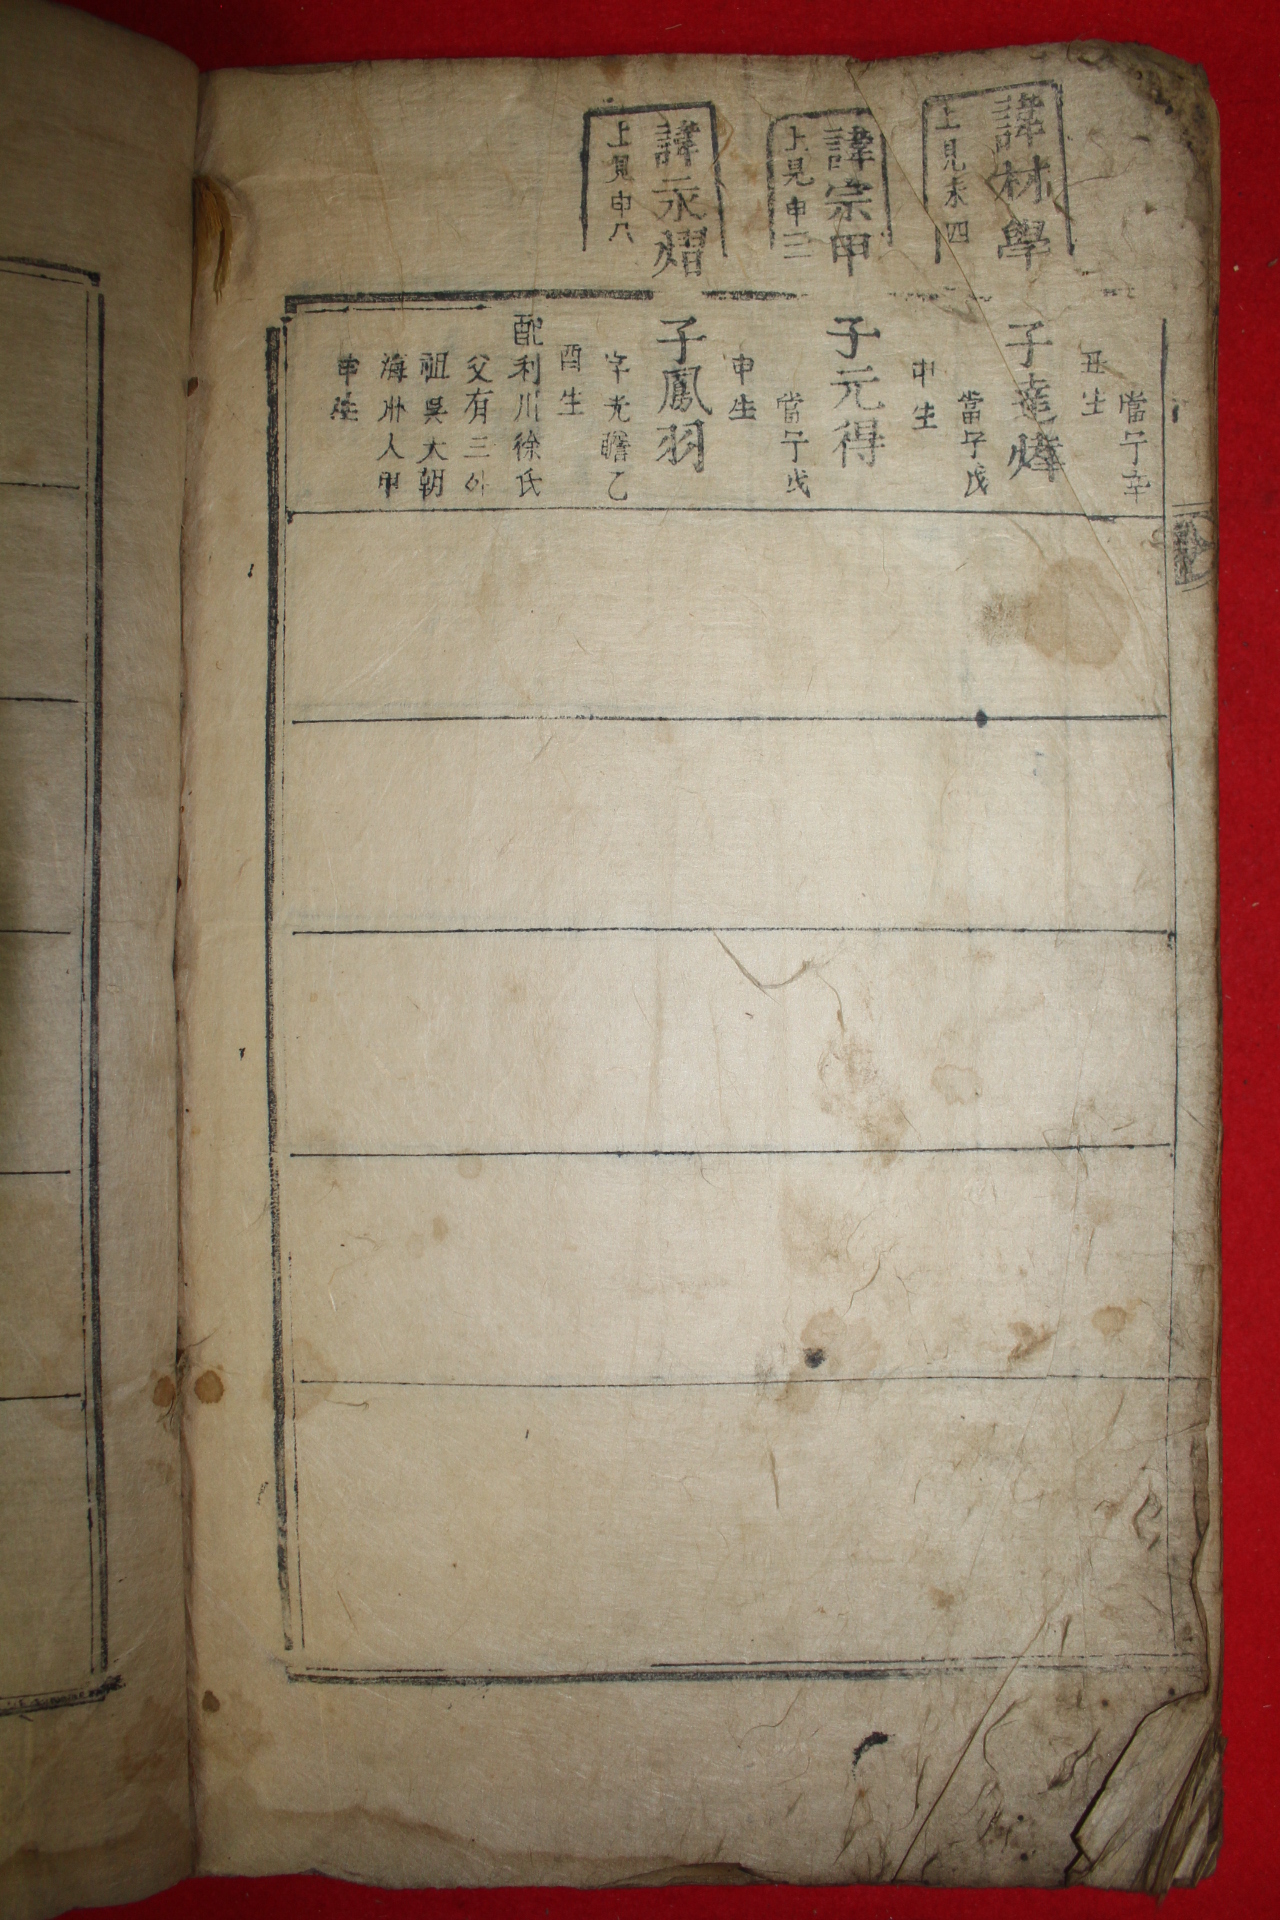 諱林學
上見未四
諱宗甲
上見申三
諱永熠
上見申八
當宁辛
丑生
子達燁
當宁戊
申生
子元得
當宁戊
申生
子鳳羽
字允瞻乙
酉生
配利川徐氏
父有三外
祖吳大朝
海州人甲
申生